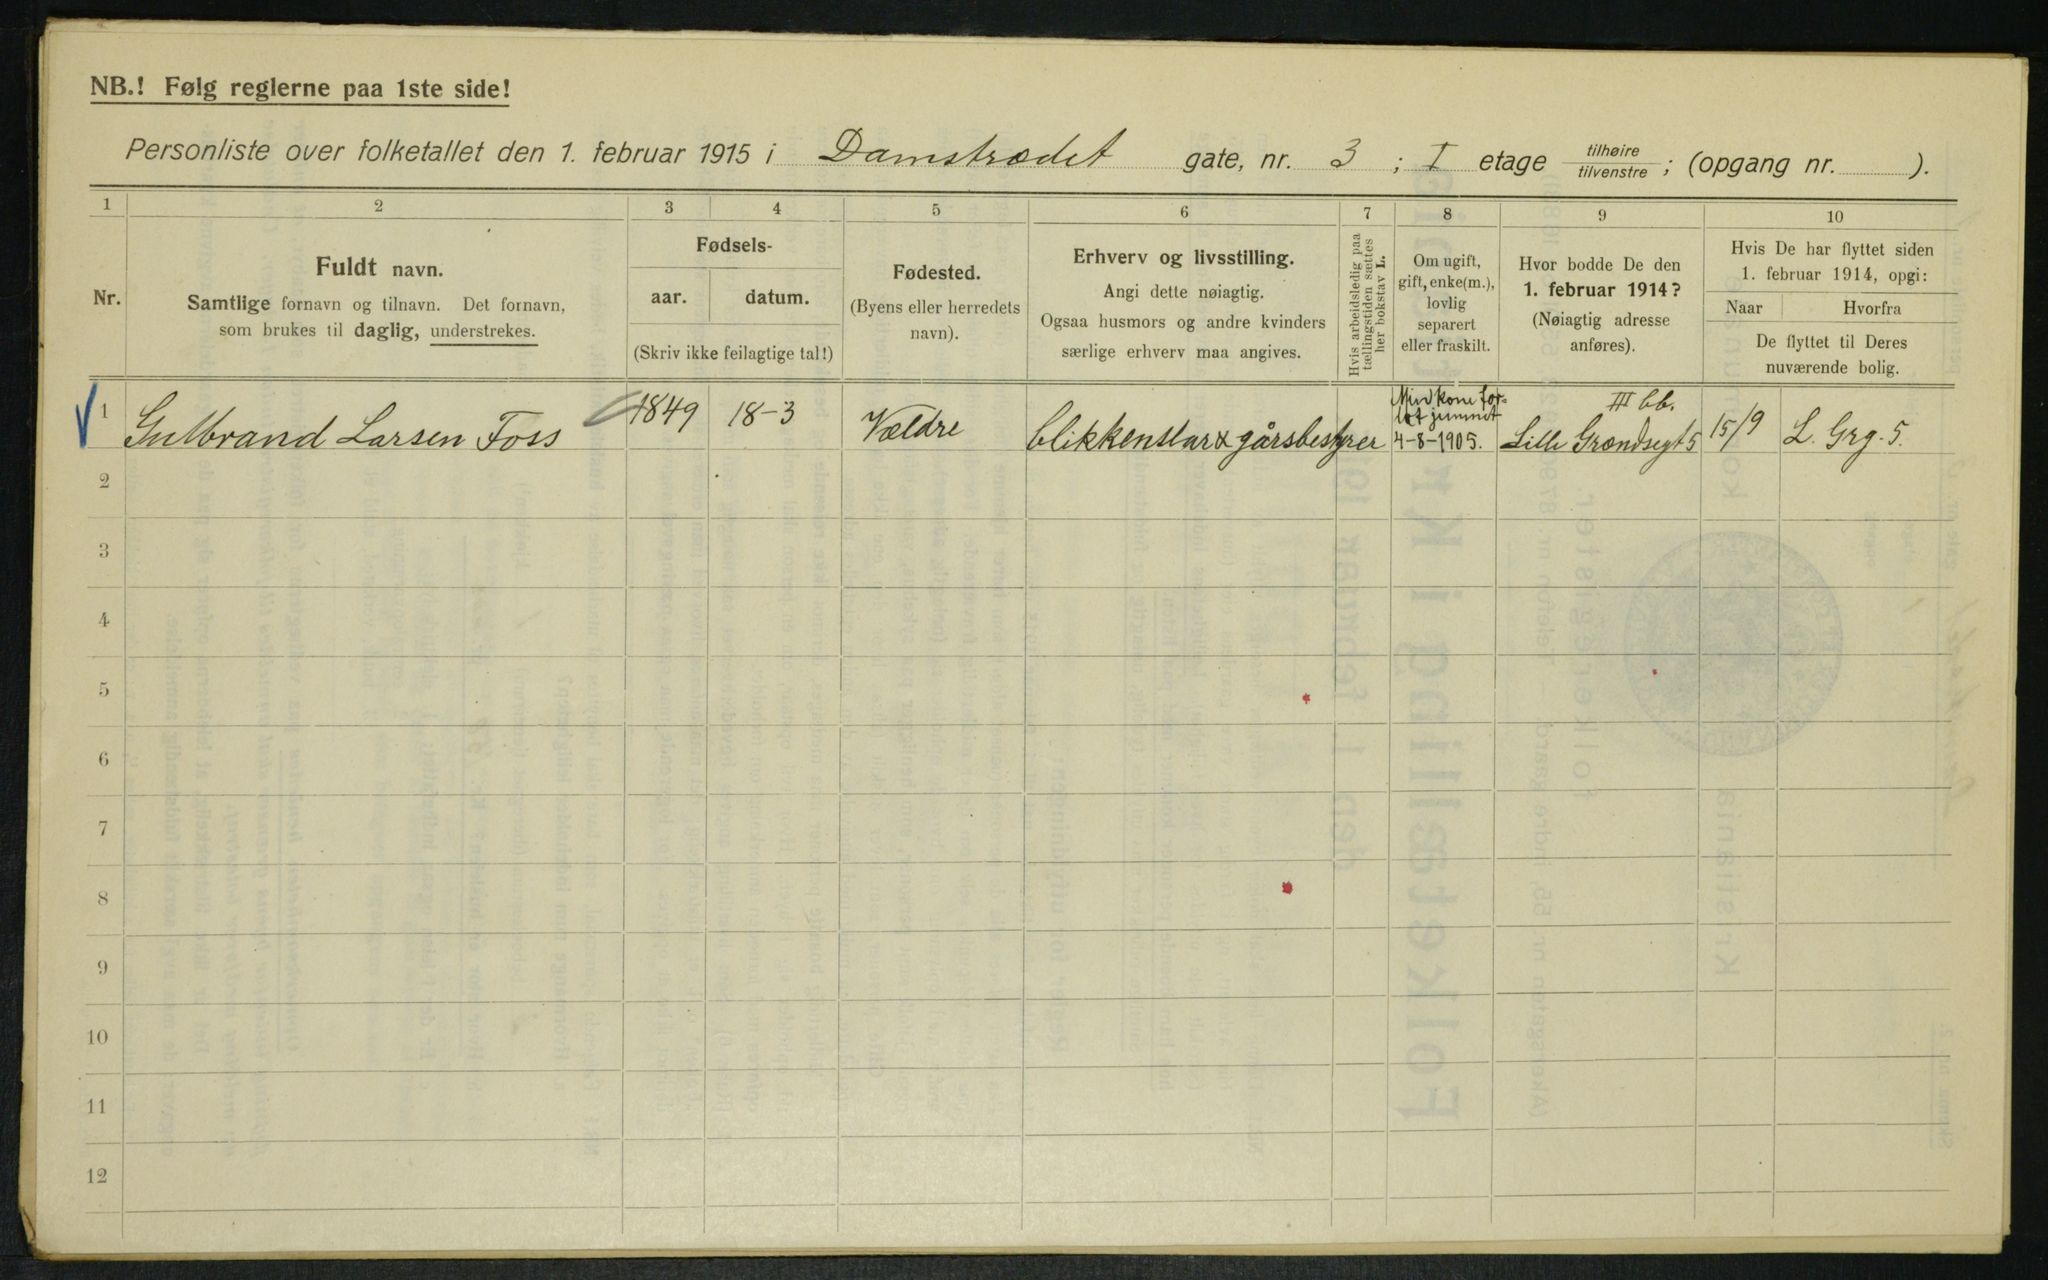 NB.! Følg reglerne paa 1ste side!
Personliste over folketallet den 1. februar 1915 i Damstrædet gate, nr. 3 ; I etage tilhøire tilvenstre ; (opgang nr. ).
1 2 3 4 5 6 7 8 9 10
Nr.
Fuldt navn.
Samtlige fornavn og tilnavn. Det fornavn,
som brukes til daglig, understrekes.
Fødsels-
aar. datum.
(Skriv ikke feilagtige tal!)
Fødested.
(Byens eller herredets
navn).
Erhverv og livsstilling.
Angi dette nøiagtig.
Ogsaa husmors og andre kvinders
særlige erhverv maa angives.
Hvis arbeidsledig paa
tællingstiden sættes
her bokstav L.
Om ugift,
gift, enke(m.),
lovlig
separert
eller fraskilt.
Hvor bodde De den
1. februar 1914?
(Nøiagtig adresse
anføres).
Hvis De har flyttet siden
1. februar 1914, opgi:
Naar Hvorfra
De flyttet til Deres
nuværende bolig.
1 Gulbrand Larsen Foss 1849 18-3 Vældre blikkenslar & gårsbestyrer
Min kone for-
lot jemmet
4-8-1905.
III bb.
Lille Grændsegt 5 15/9 L. Grg. 5.
2
3
4
5
6
7
8
9
10
11
12